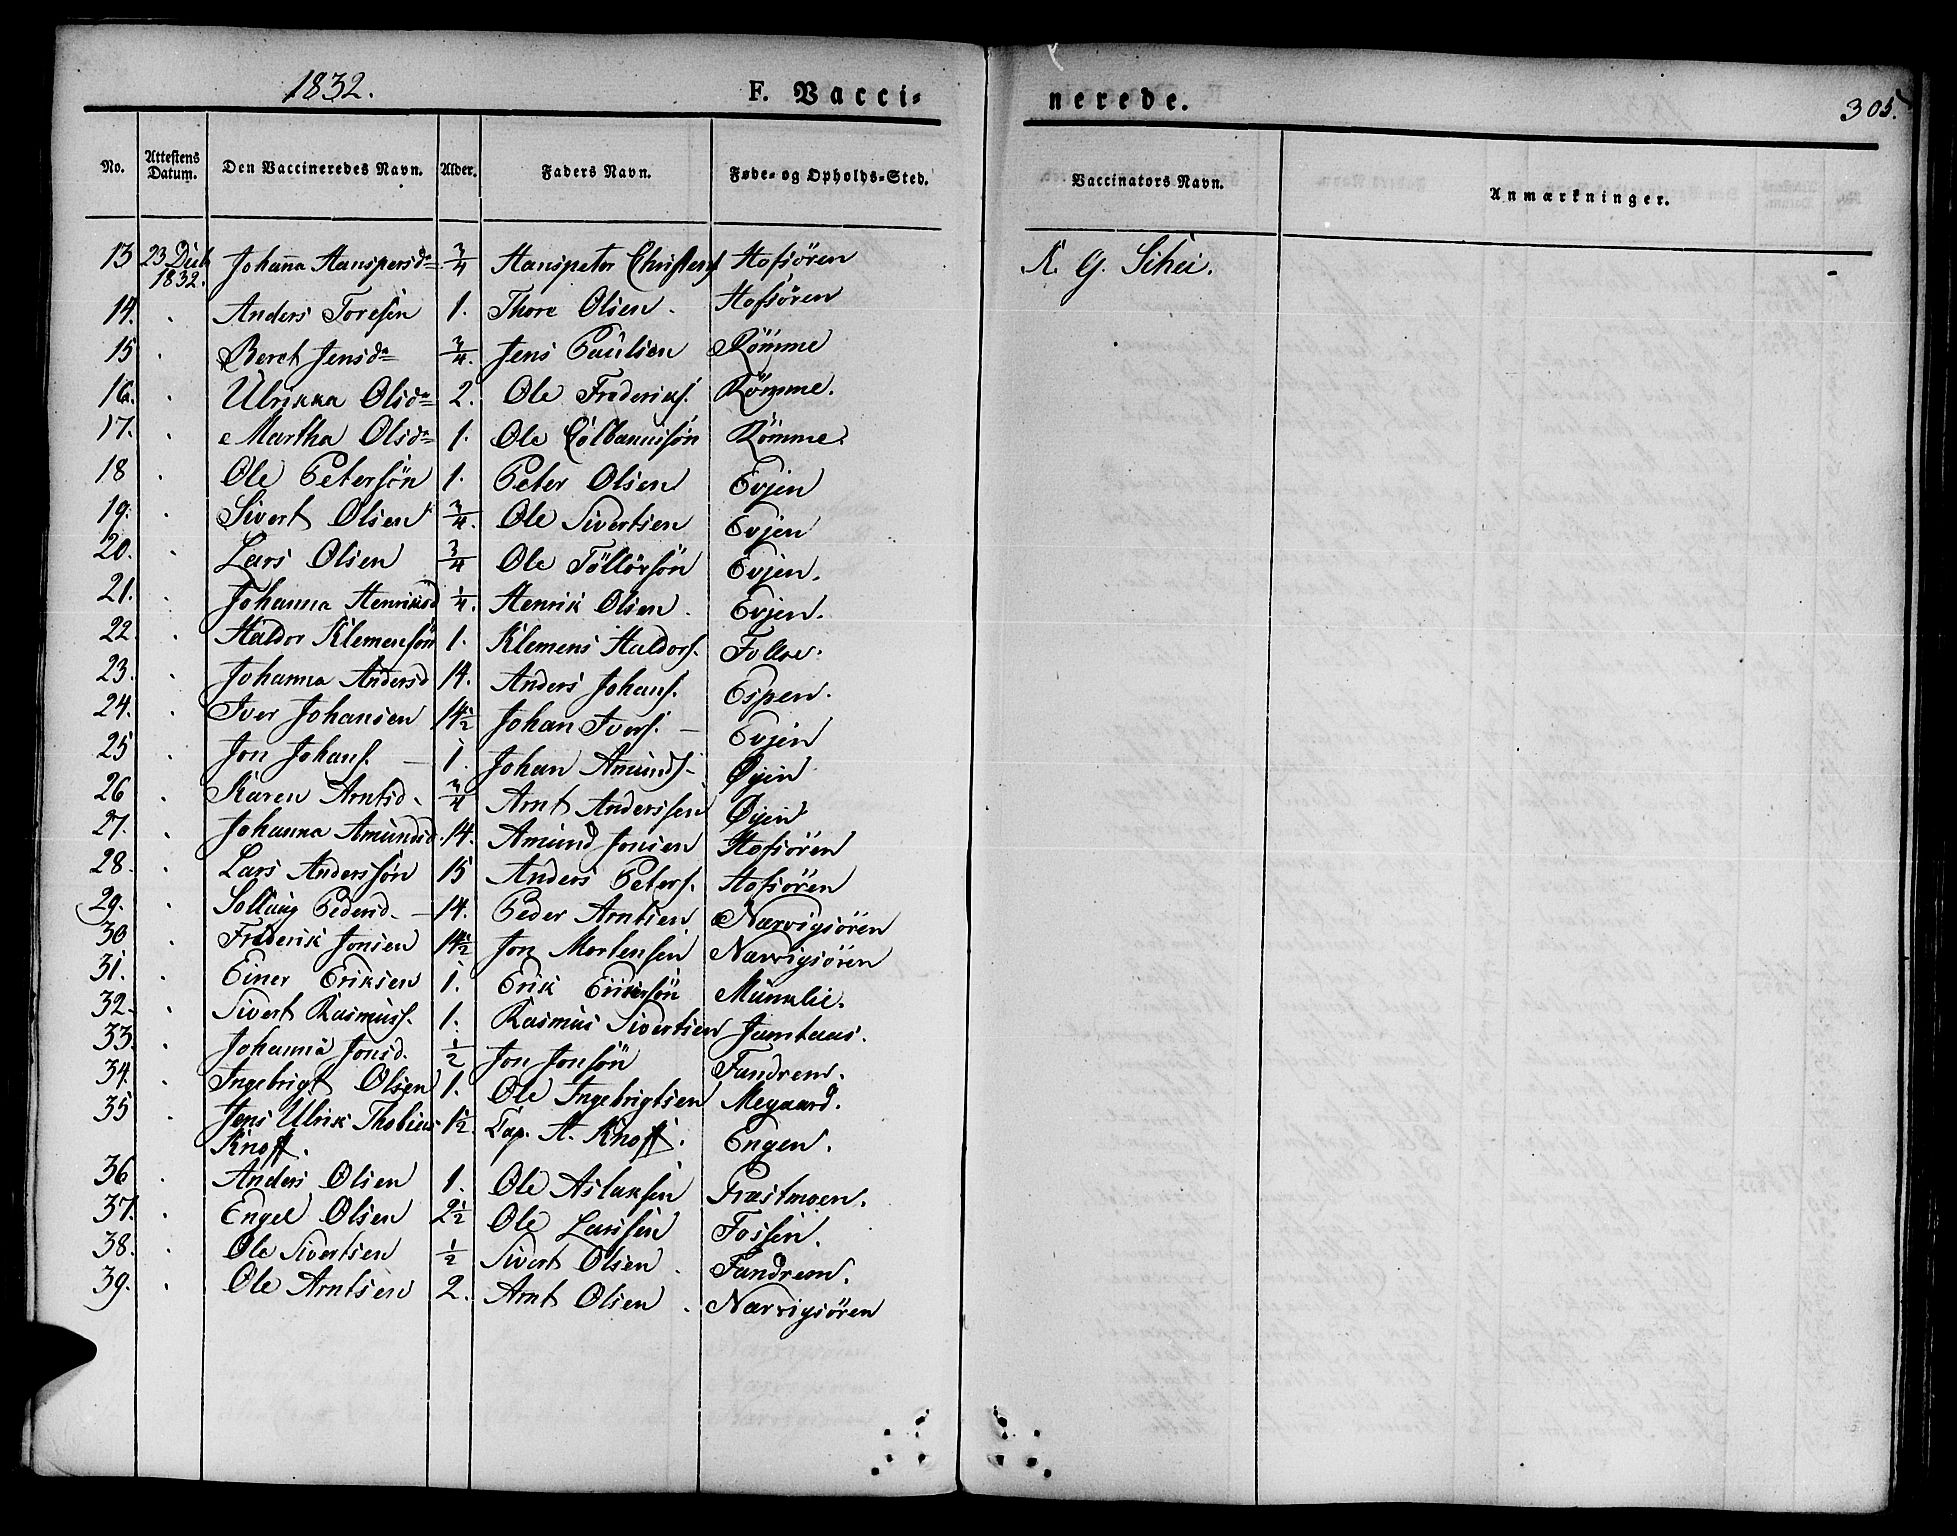 1832.
F. Vacci-
nerede.
305.
No. Attestens Datum. Den Vaccineredes Navn. Alder. Faders Navn. Føde- og Opholds-Sted. Vaccinators Navn. Anmærkninger.
13 23 Decb 1832. Johanna Hanspersdr 3/4 Hanspeter Christens Hofsören K. G. Schei.
14. Anders Toresen 1. Thore Olsen Hofsören
15 Beret Jensdr 3/4. Jens Paulsen Römme
16. Ulrikka Olsdr 2. Ole Frederiks. Römme.
17. Martha Olsdr 1. Ole Kölbanussön Römme.
18 Ole Petersön 1. Peter Olsen Evjen
19. Sivert Olsen 3/4. Ole Sivertsen Evjen
20. Lars Olsen 3/4 Ole Töllörsön Evjen.
21. Johanna Henriksd 1/4. Henrik Olsen Evjen.
22. Haldor Klemensön 1. Klemens Haldors. Follse.
23. Johanna Andersd 14. Anders Johans. Espen.
24. Iver Johansen 14 1/2 Johan Ivers. Evjen
25 Jon Johans. 1. Johan Amunds Öyen
26 Karen Arntsd. 3/4 Arnt Anderssen Öyen
27. Johanna Amundsd. 14. Amund Jonsen Hofsören
28. Lars Anderssön 15 Anders Peters. Hofsören
29. Sollaug Pedersd. 14. Peder Arntsen Narvigsören
30 Frederik Jonsen 14 1/2 Jon Mortensen Narvigsören
31. Einer Eriksen 1. Erik Eriksön Munklie.
32. Sivert Rasmuss. 1. Rasmus Sivertsen Jamtaas.
33. Johanna Jonsd. 1/2 Jon Jonsön Fandrem.
34. Ingebrigt Olsen 1. Ole Ingebrigtsen Megaard.
35 Jens Ulrik Thobias 1 1/2. Cap. A. Knoff. Engen.
Knoff.
36 Anders Olsen 1. Ole Aslaksen Præstmoen.
37. Engel Olsen 2 1/2 Ole Larssen Fossen.
38. Ole Sivertsen 1/2 Sivert Olsen Fandrem.
39. Ole Arntsen 2. Arnt Olsen Narvigsören